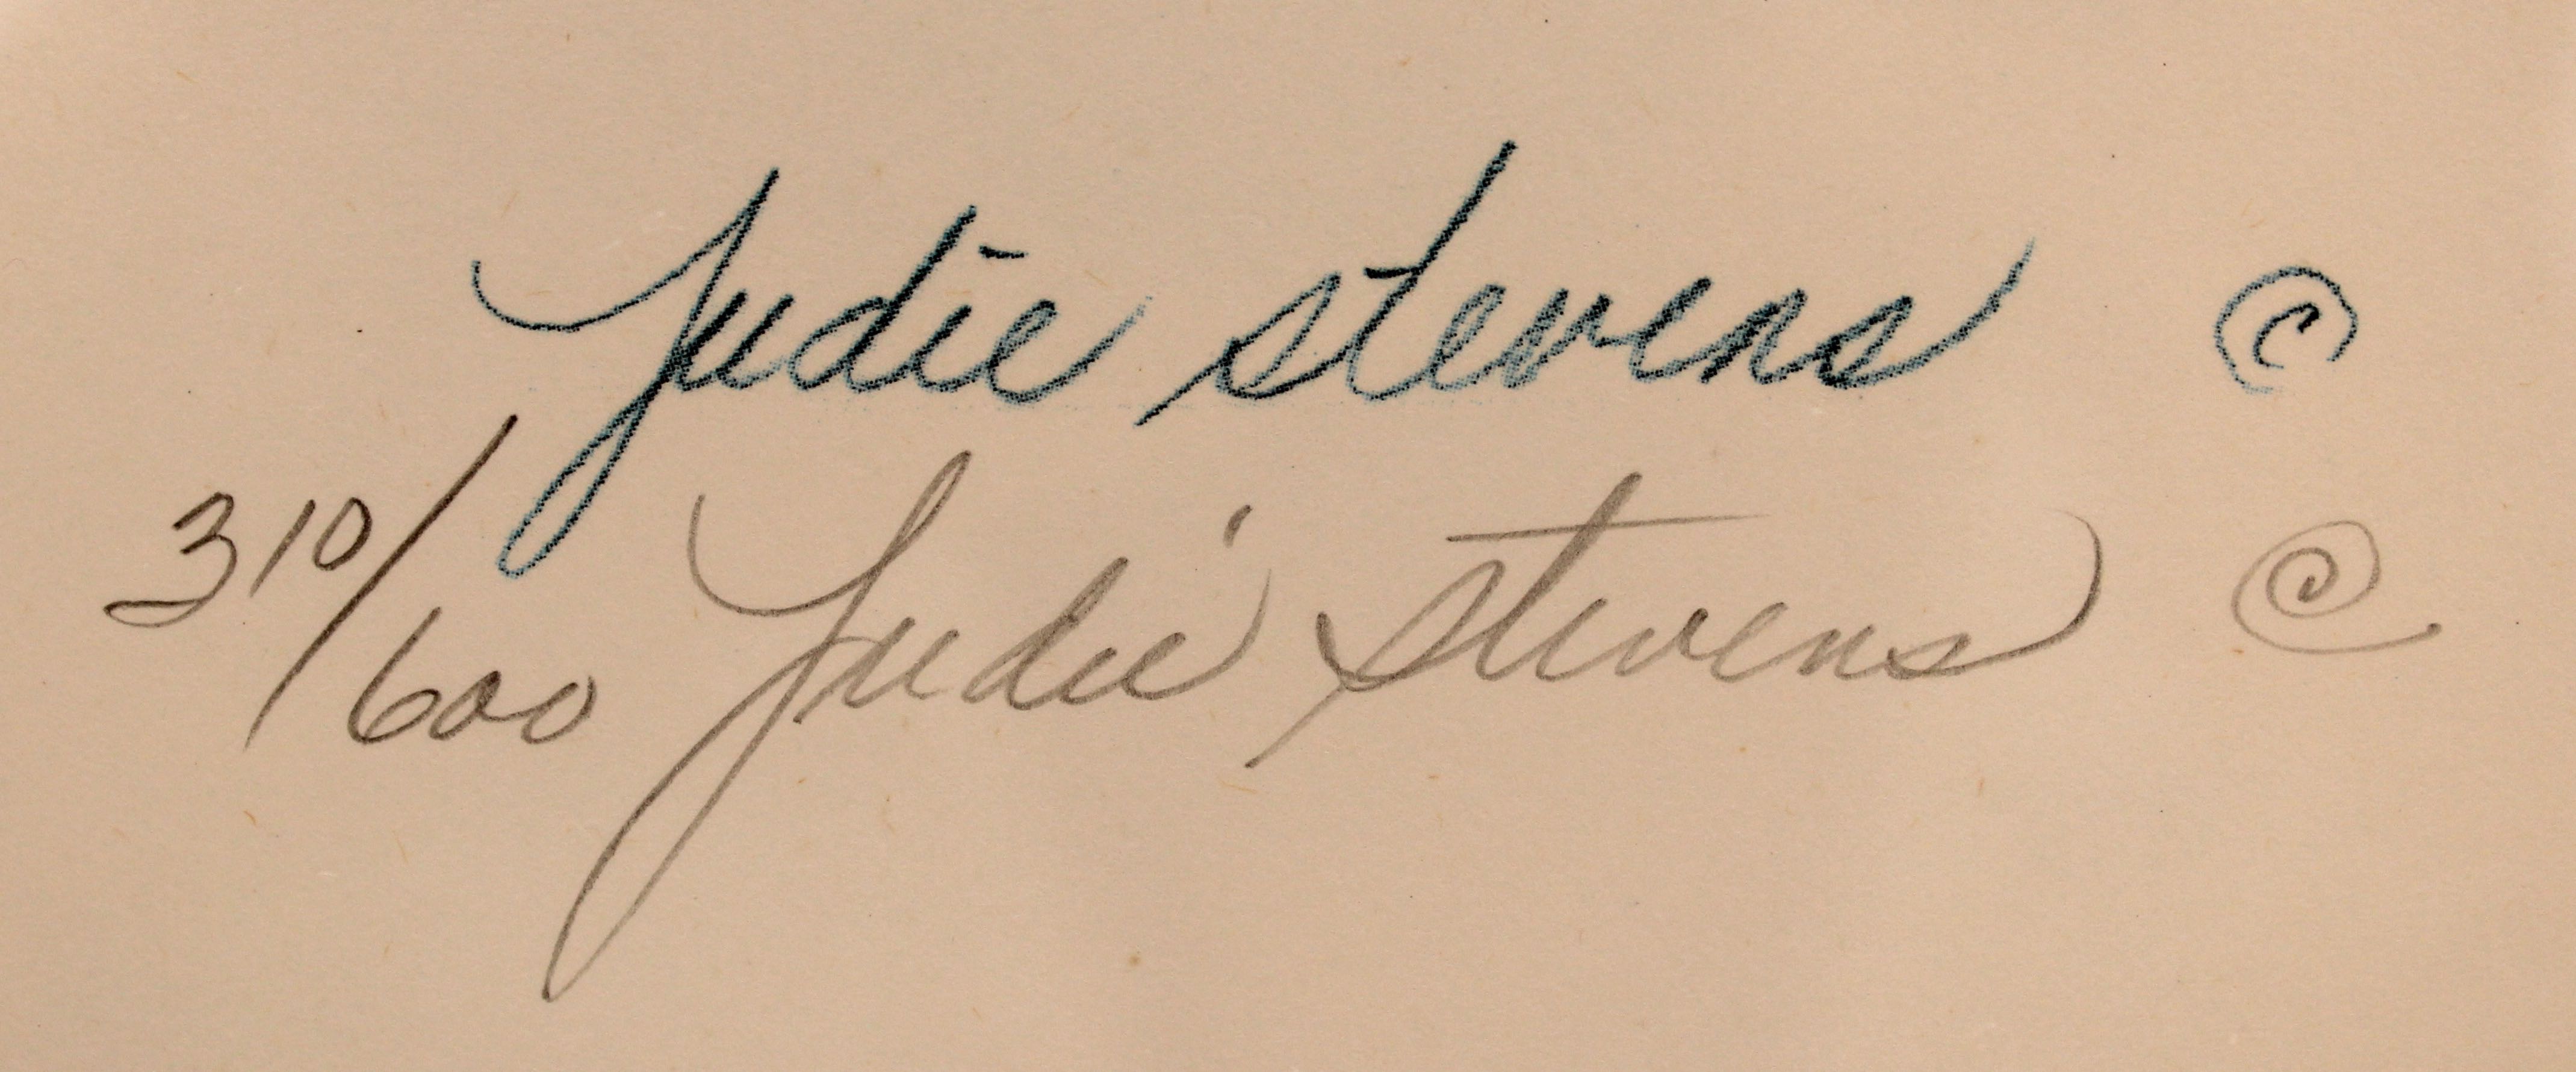 Judie Stevens ©
310/600 Judie Stevens ©